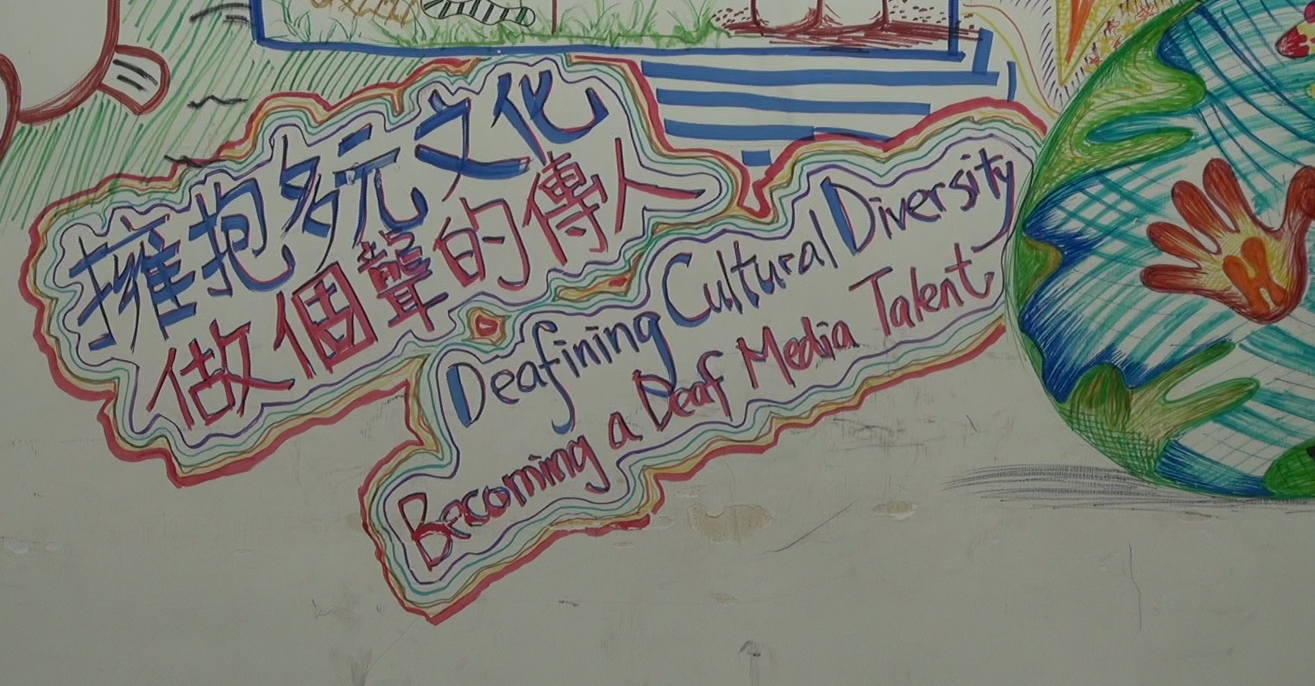 擁抱多元文化
做個聾的傳人
Deafining Cultural Diversity
Becoming a Deaf Media Talent
H